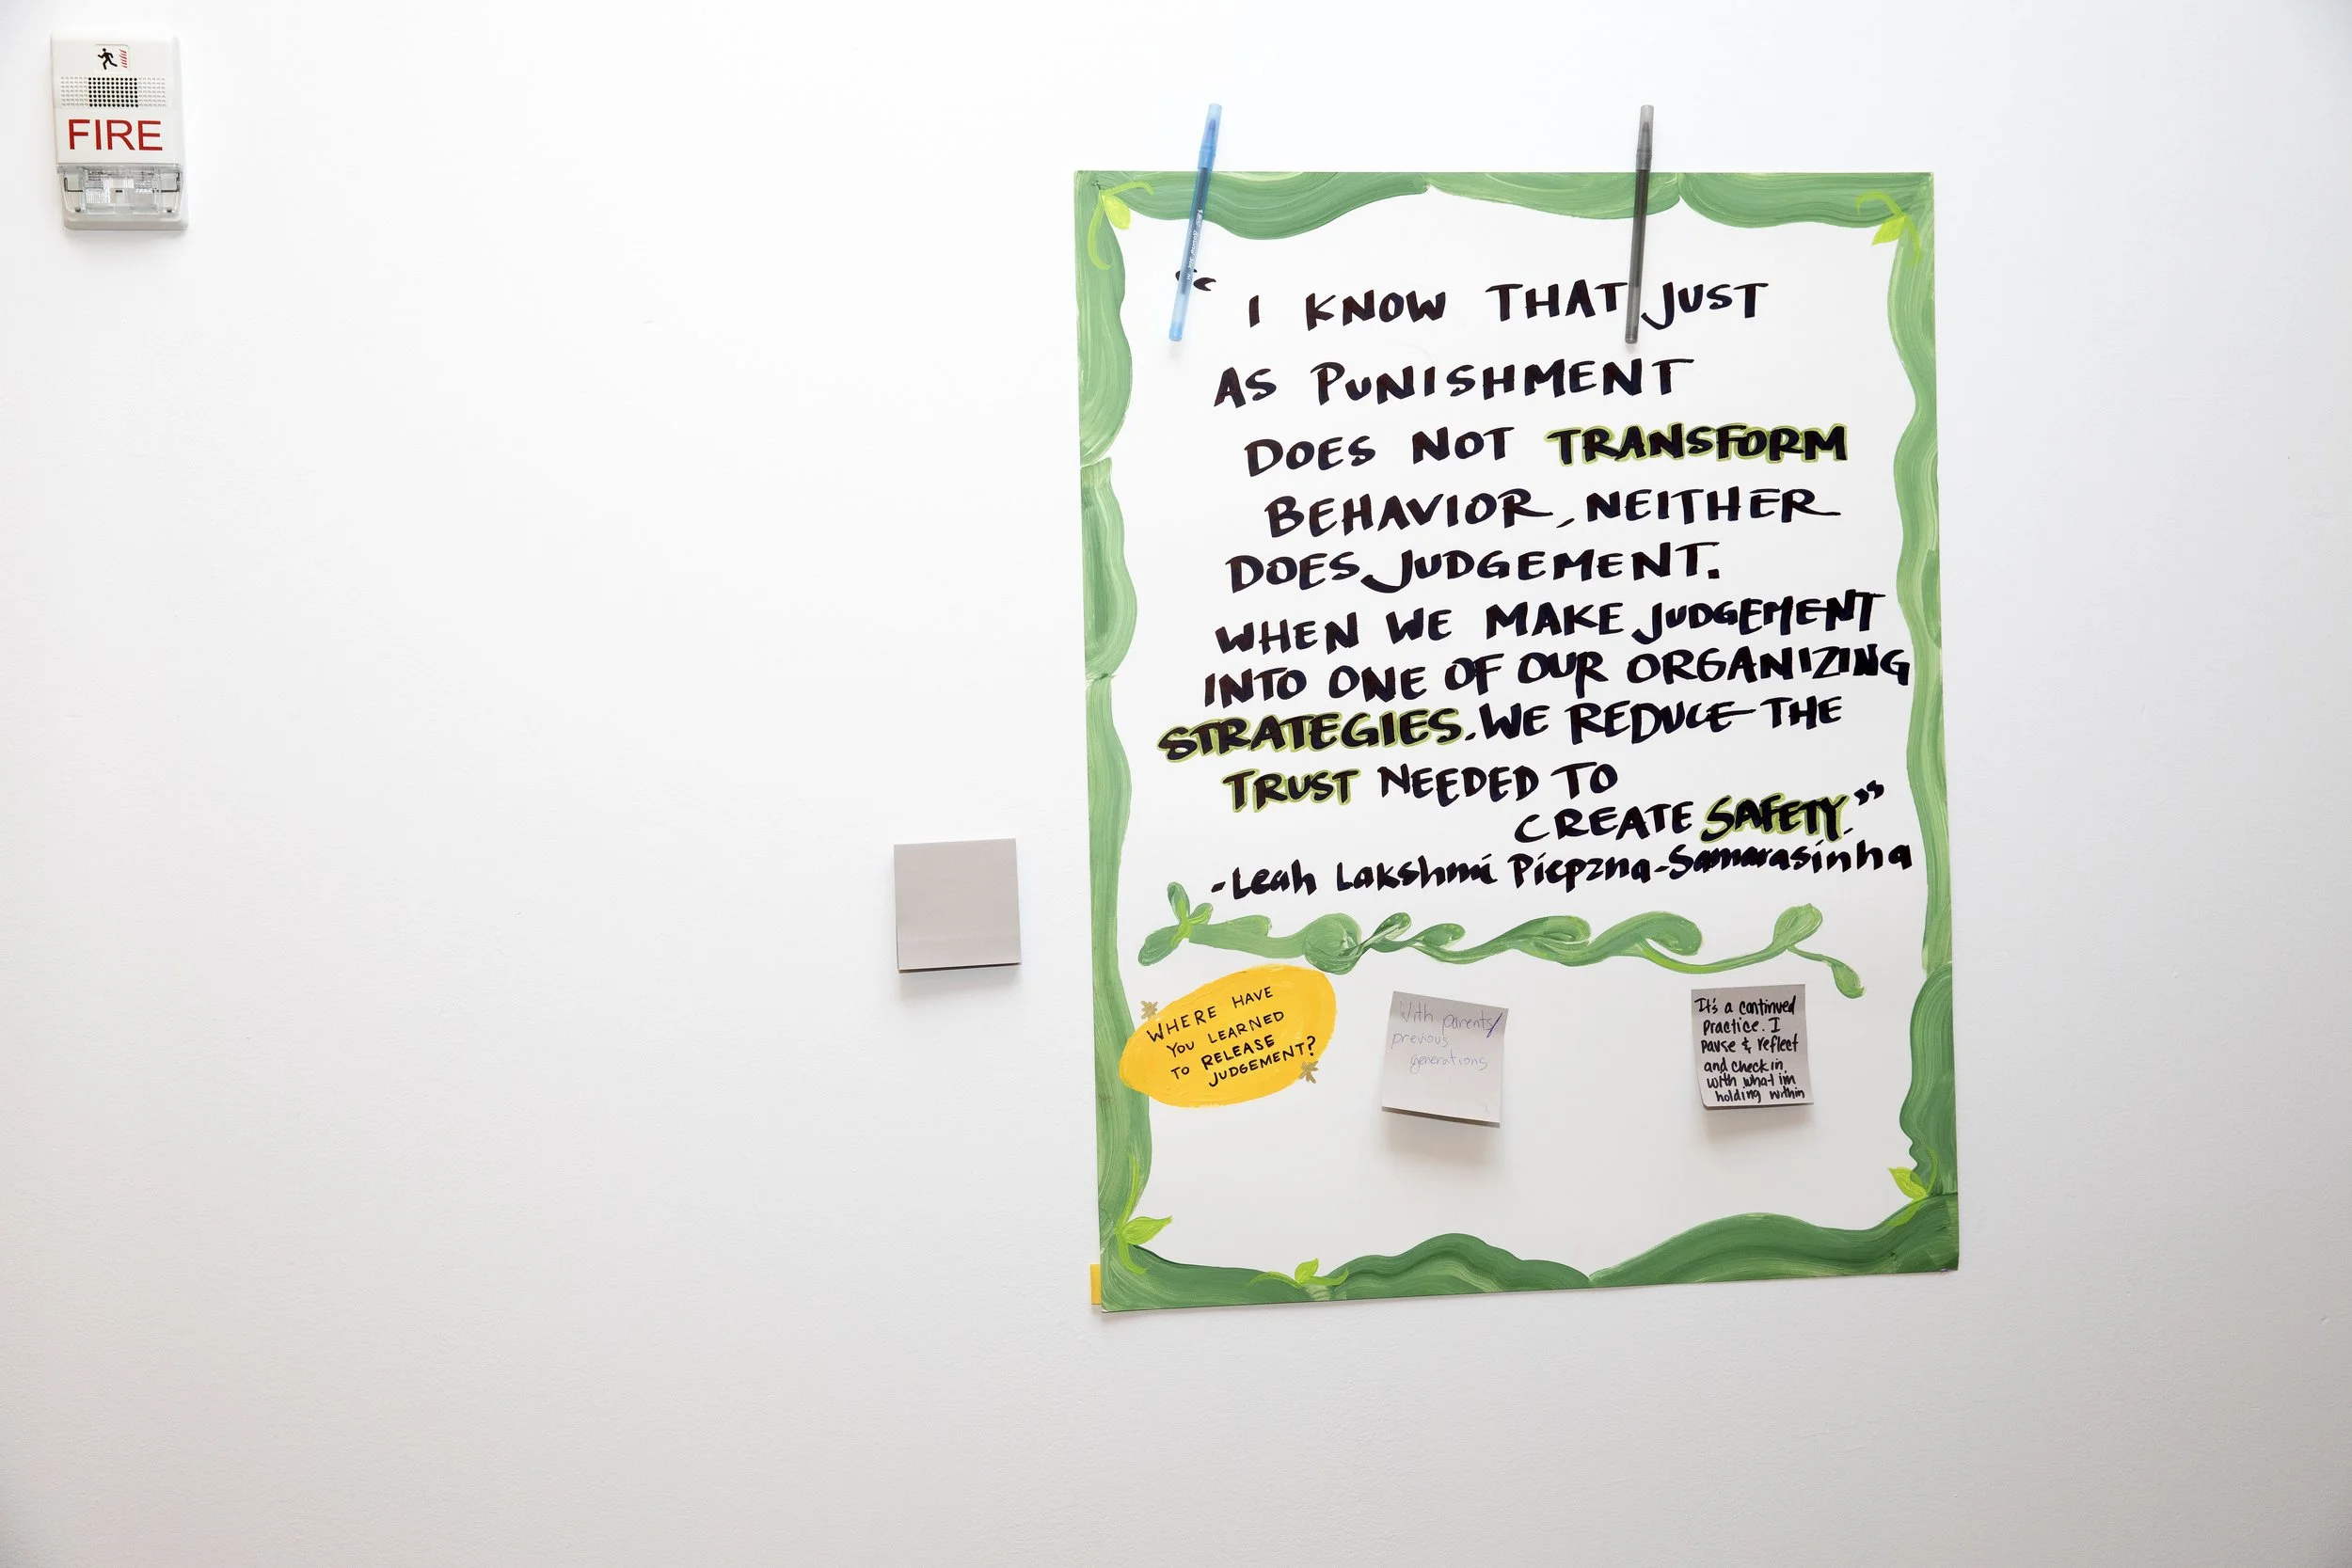 FIRE
“ I KNOW THAT JUST
AS PUNISHMENT
DOES NOT TRANSFORM
BEHAVIOR, NEITHER
DOES JUDGEMENT.
WHEN WE MAKE JUDGEMENT
INTO ONE OF OUR ORGANIZING
STRATEGIES. WE REDUCE THE
TRUST NEEDED TO
CREATE SAFETY.”
-Leah Lakshmi Piepzna-Samarasinha
WHERE HAVE
YOU LEARNED
TO RELEASE
JUDGEMENT?
With parents/
previous
generations
It's a continued
practice. I
pause & reflect
and check in
with what im
holding within